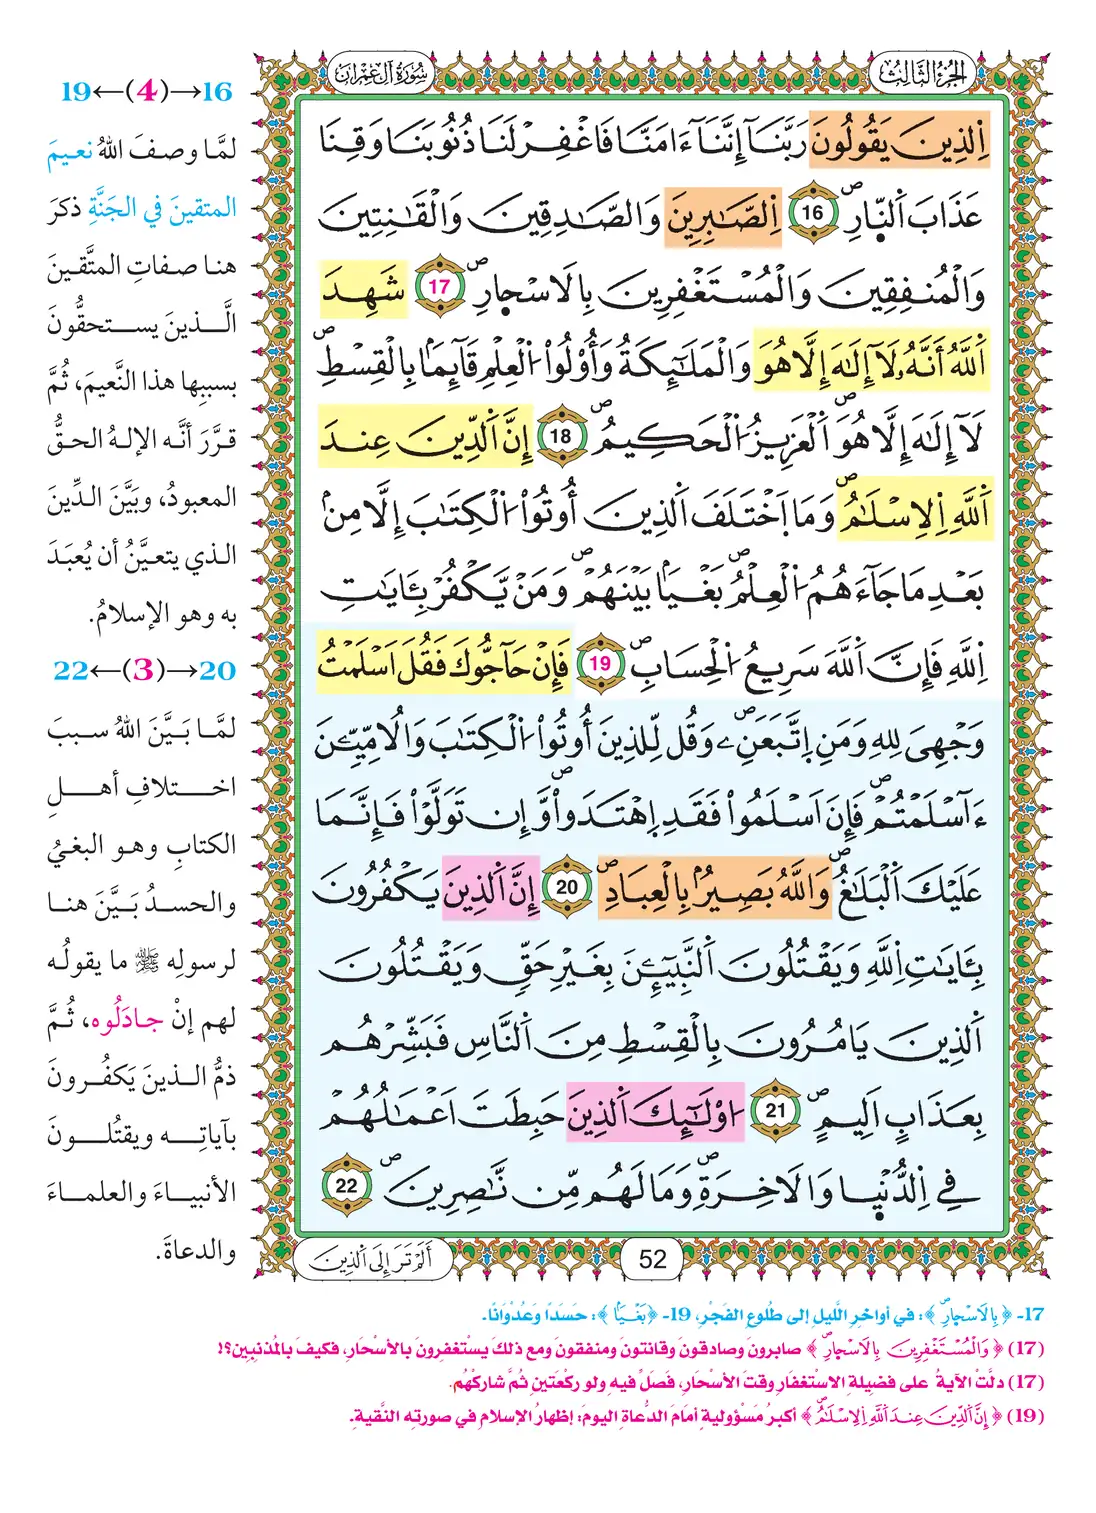 الجزء الثالث
سورة آل عمران
اِ۬لذِينَ يَقُولُونَ رَبَّنَآ إِنَّنَآ ءَامَنَّا فَاغْفِرْ لَنَا ذُنُوبَنَا وَقِنَا
عَذَابَ اَ۬لنّ۪ارِۖ 16 اِ۬لصَّٰبِرِينَ وَالصَّٰدِقِينَ وَالْقَٰنِتِينَ
وَالْمُنفِقِينَ وَالْمُسْتَغْفِرِينَ بِالَاسْح۪ارِۖ 17 شَهِدَ
اَ۬للَّهُ أَنَّهُۥ لَآ إِلَٰهَ إِلَّا هُوَ وَالْمَلَٰٓئِكَةُ وَأُوْلُواْ اُ۬لْعِلْمِ قَآئِماَۢ بِالْقِسْطِۖ
لَآ إِلَٰهَ إِلَّا هُوَۖ اَ۬لْعَزِيزُ اُ۬لْحَكِيمُۖ 18 إِنَّ اَ۬لدِّينَ عِندَ
اَ۬للَّهِ اِ۬لِاسْلَٰمُۖ وَمَا اَ۪خْتَلَفَ اَ۬لذِينَ أُوتُواْ اُ۬لْكِتَٰبَ إِلَّا مِنۢ
بَعْدِ مَا جَآءَهُمُ اُ۬لْعِلْمُۖ بَغْياَۢ بَيْنَهُمْۖ وَمَنْ يَّكْفُرْ بِـَٔايَٰتِ
اِ۬للَّهِ فَإِنَّ اَ۬للَّهَ سَرِيعُ اُ۬لْحِسَابِۖ 19 فَإِنْ حَآجُّوكَ فَقُلَ اَسْلَمْتُ
وَجْهِيَ لِلهِ وَمَنِ اِ۪تَّبَعَنِۦۖ وَقُل لِّلذِينَ أُوتُواْ اُ۬لْكِتَٰبَ وَالُامِّيِّـۧنَ
ءَآسْلَمْتُمْۖ فَإِنَ اَسْلَمُواْ فَقَدِ اِ۪هْتَدَواْۖ وَّإِن تَوَلَّوْاْ فَإِنَّمَا
عَلَيْكَ اَ۬لْبَلَٰغُۖ وَاللَّهُ بَصِيرُۢ بِالْعِبَادِۖ 20 إِنَّ اَ۬لذِينَ يَكْفُرُونَ
بِـَٔايَٰتِ اِ۬للَّهِ وَيَقْتُلُونَ اَ۬لنَّبِيٓـِٕۧنَ بِغَيْرِ حَقّٖ وَيَقْتُلُونَ
اَ۬لذِينَ يَامُرُونَ بِالْقِسْطِ مِنَ اَ۬لنَّاسِ فَبَشِّرْهُم
بِعَذَابٍ اَلِيمٍۖ 21 اُ۟وْلَٰٓئِكَ اَ۬لذِينَ حَبِطَتَ اَعْمَٰلُهُمْ
فِے اِ۬لدُّنْي۪ا وَالَاخِرَةِۖ وَمَا لَهُم مِّن نَّٰصِرِينَۖ 22
أَلَمْ تَرَ إِلَى اَ۬لذِينَ
52
16→(4)←19
لمَّا وصفَ اللهُ نعيمَ
المتقينَ في الجَنَّةِ ذكرَ
هنا صفاتِ المتَّقينَ
الَّذينَ يستحقُّونَ
بسببِها هذا النَّعيمَ، ثُمَّ
قرَّرَ أنَّه الإلهُ الحقُّ
المعبودُ، وبَيَّنَ الدِّينَ
الذي يتعيَّنُ أن يُعبَدَ
به وهو الإسلامُ.
20→(3)←22
لمَّا بَيَّنَ اللهُ سببَ
اختلافِ أهلِ
الكتابِ وهو البغيُ
والحسدُ بَيَّنَ هنا
لرسولِه ﷺ ما يقولُه
لهم إنْ جادَلُوه، ثُمَّ
ذمُّ الذينَ يَكفُرونَ
بآياتِه ويقتُلونَ
الأنبياءَ والعلماءَ
والدعاةَ.
17- ﴿بِالَاسْح۪ارِۖ﴾: في أواخرِ اللَّيلِ إلى طُلُوعِ الفَجْرِ، 19- ﴿بَغْياَۢ﴾: حَسَدًا وَعُدْوَانًا.
(17) ﴿وَالْمُسْتَغْفِرِينَ بِالَاسْح۪ارِۖ﴾ صابرونَ وصادقونَ وقانتونَ ومنفقونَ ومع ذلكَ يستغفرونَ بالأسْحارِ، فكيفَ بالمُذنبِينَ؟!
(17) دلَّتْ الآيةُ على فضيلةِ الاستغفارِ وقتَ الأسْحارِ، فَصَلِّ فيه ولو ركْعَتَينِ ثُمَّ شاركْهُم.
(19) ﴿إِنَّ اَ۬لدِّينَ عِندَ اَ۬للَّهِ اِ۬لِاسْلَٰمُۖ﴾ أكبرُ مَسْؤوليةٍ أمامَ الدُّعاةِ اليومَ: إظهارُ الإسلامِ في صورتِه النَّقيةِ.